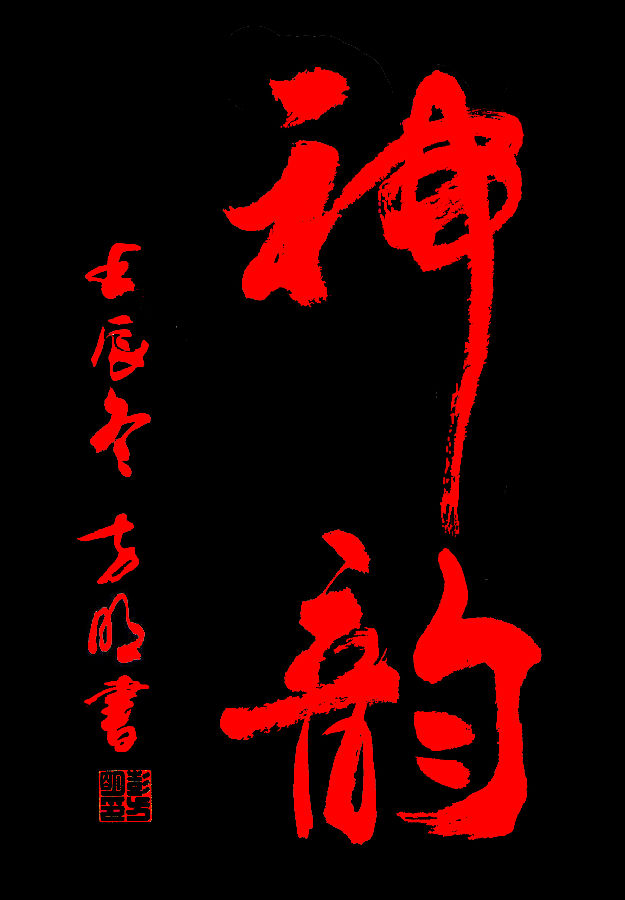 神韵
壬辰冬 方明書
彭方明印